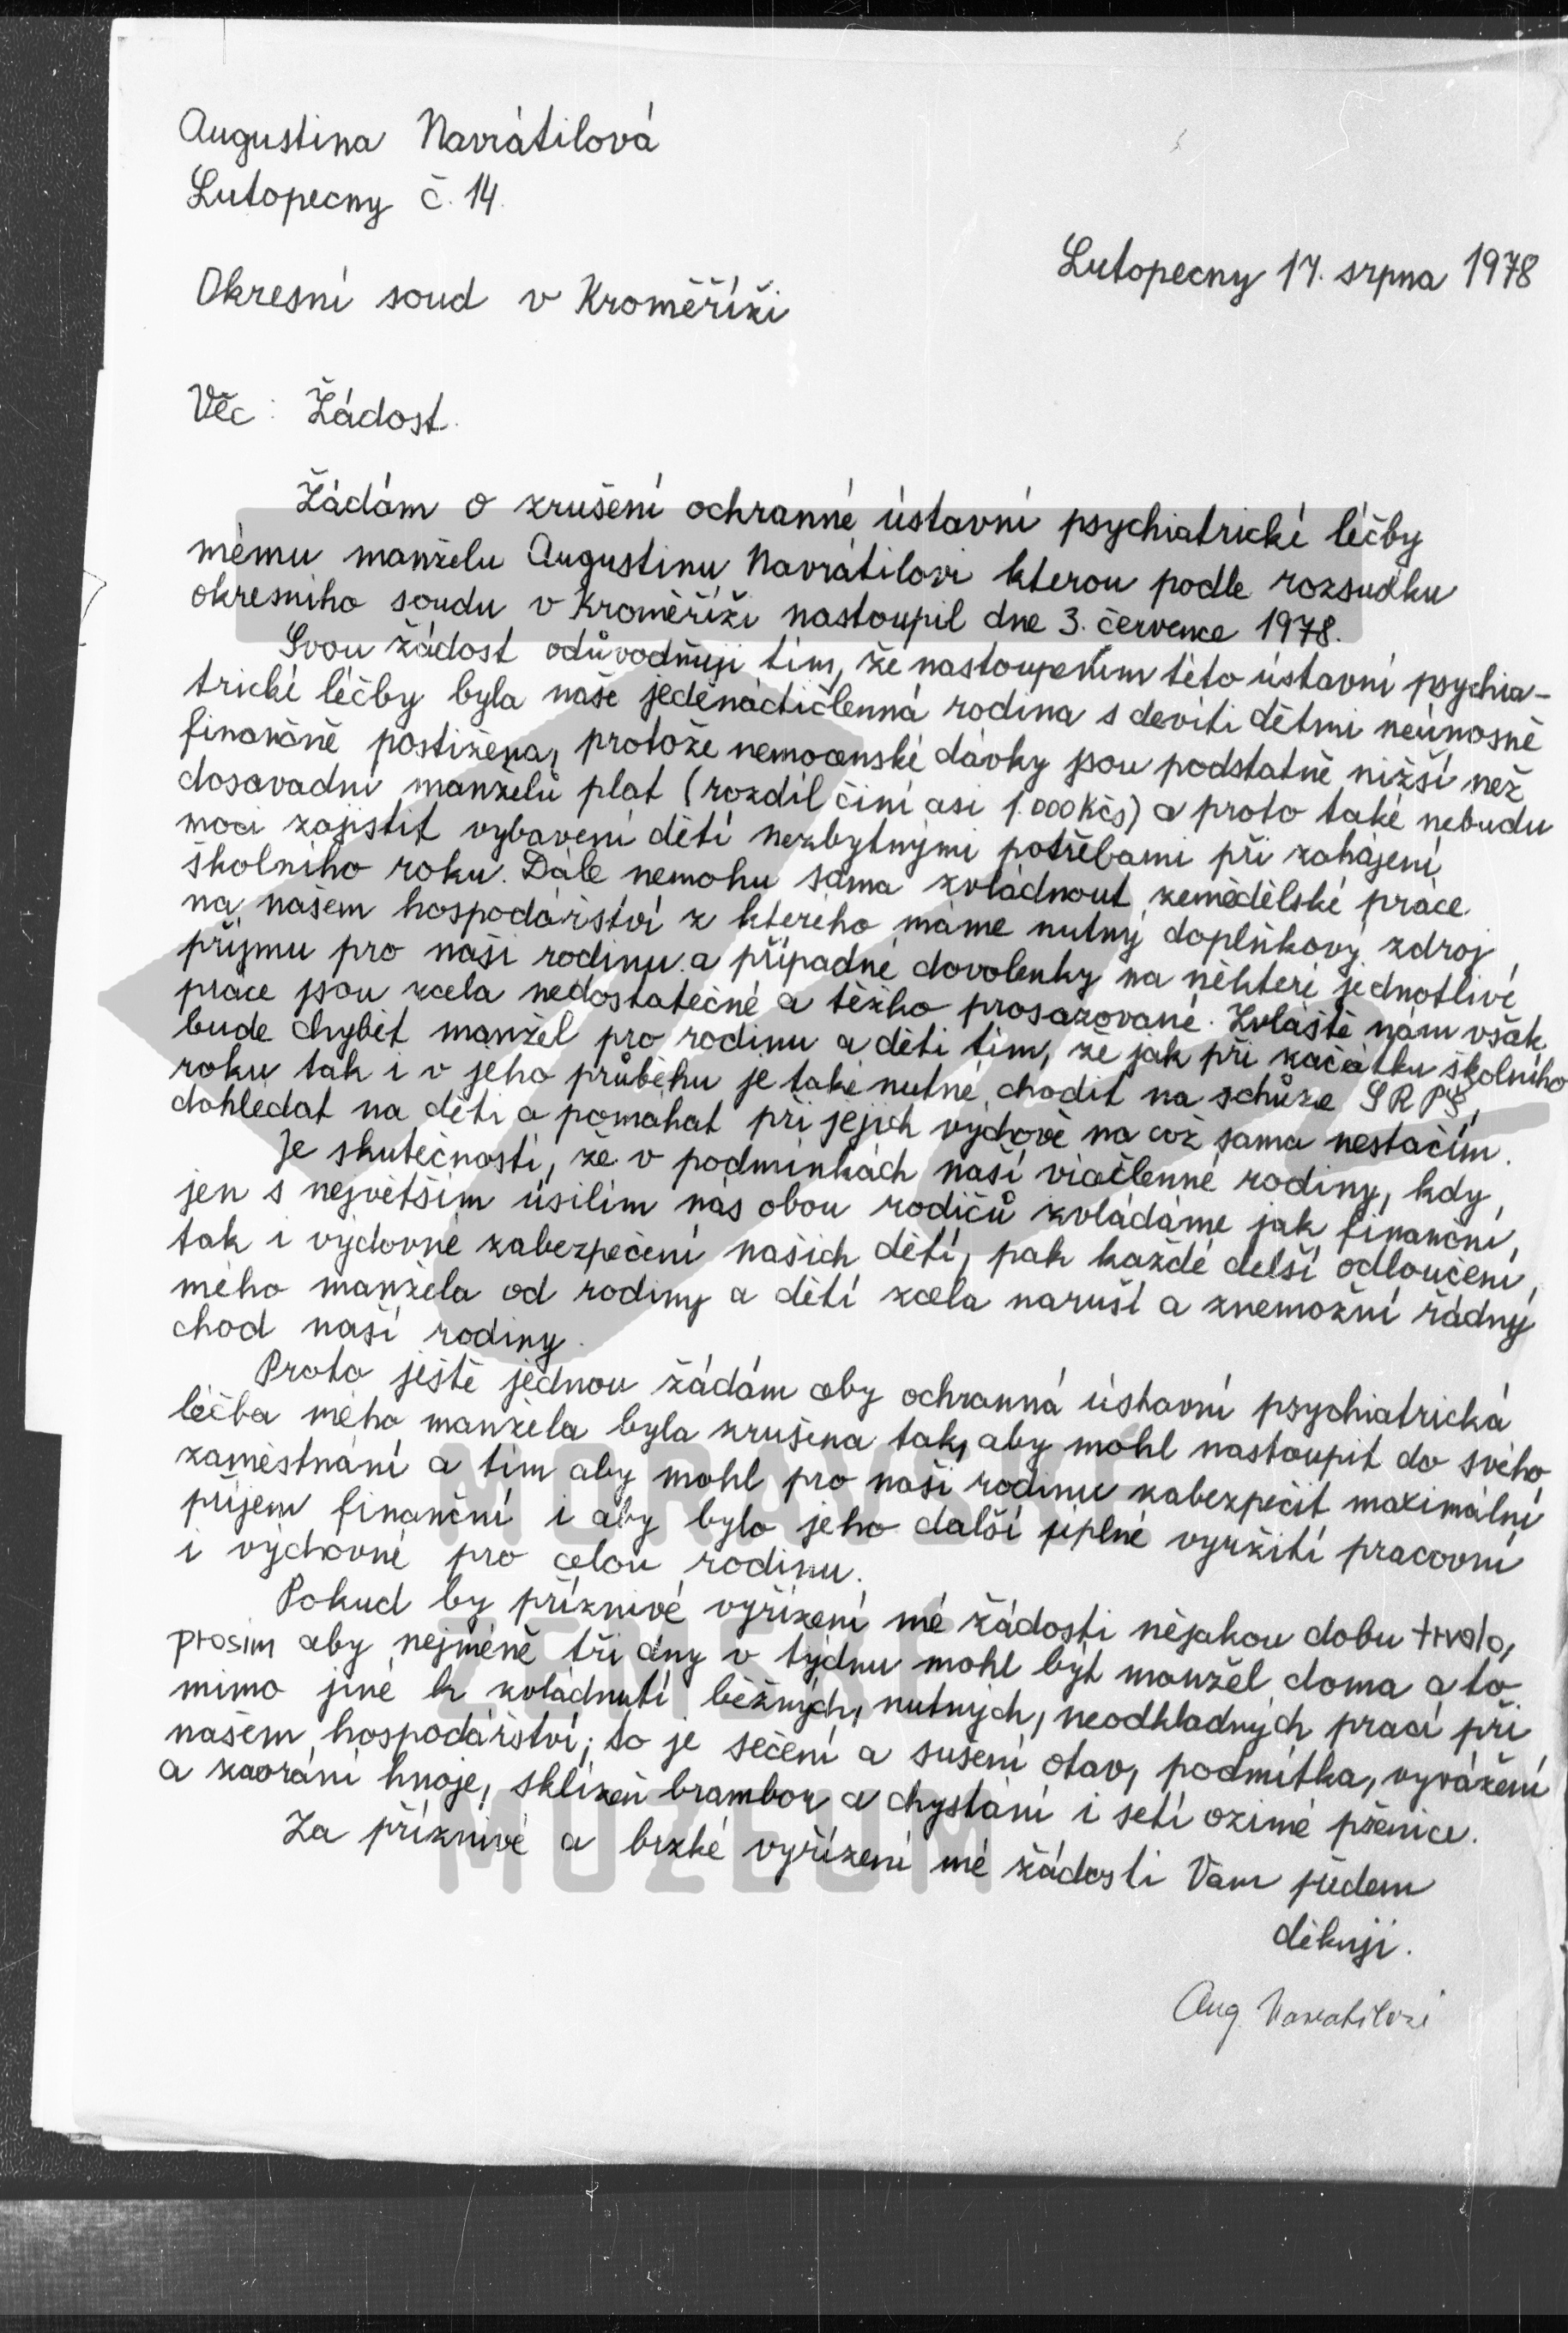 Augustina Navrátilová
Lutopecny č. 14.
Lutopecny 17. srpna 1978
Okresní soud v Kroměříži
Věc: Žádost.
Žádám o zrušení ochranné ústavní psychiatrické léčby
mému manželu Augustinu Navrátilovi kterou podle rozsudku
okresního soudu v Kroměříži nastoupil dne 3. července 1978.
Svou žádost odůvodňuji tím, že nastoupením této ústavní psychia-
trické léčby byla naše jedenáctičlenná rodina s devíti dětmi neúnosně
finančně postižena, protože nemocenské dávky jsou podstatně nižší než
dosavadní manželů plat (rozdíl činí asi 1.000 Kčs) a proto také nebudu
moci zajistit vybavení dětí nezbytnými potřebami při zahájení
školního roku. Dále nemohu sama zvládnout zemědělské práce
na našem hospodářství z kterého máme nutný doplňkový zdroj
příjmu pro naši rodinu a případné dovolenky na některé jednotlivé
práce jsou zcela nedostatečné a těžko prosazované. Zvláště nám však
bude chybět manžel pro rodinu a děti tím, že jak při začátku školního
roku tak i v jeho průběhu je také nutné chodit na schůze SRPŠ,
dohlédat na děti a pomáhat při jejich výchově na což sama nestačím.
Je skutečností, že v podmínkách naší víačlenné rodiny, kdy
jen s největším úsilím nás obou rodičů zvládáme jak finanční,
tak i výchovné zabezpečení našich dětí, pak každé delší odloučení
mého manžela od rodiny a dětí zcela naruší a znemožní řádný
chod naší rodiny.
Proto ještě jednou žádám aby ochranná ústavní psychiatrická
léčba mého manžela byla zrušena tak, aby mohl nastoupit do svého
zaměstnání a tím aby mohl pro naši rodinu zabezpečit maximální
příjem finanční i aby bylo jeho další úplné využití pracovní
i výchovné pro celou rodinu.
Pokud by příznivé vyřízení mé žádosti nějakou dobu trvalo,
prosím aby nejméně tři dny v týdnu mohl být manžel doma a to
mimo jiné k zvládnutí běžných, nutných, neodkladných prací při
našem hospodářství; to je sečení a sušení otav, podmítka, vyvážení
a zaorání hnoje, sklizeň brambor a chystání i setí ozimé pšenice.
Za příznivé a brzké vyřízení mé žádosti Vám předem
děkuji.
Aug. Navrátilová
MORAVSKÉ
ZEMSKÉ
MUZEUM